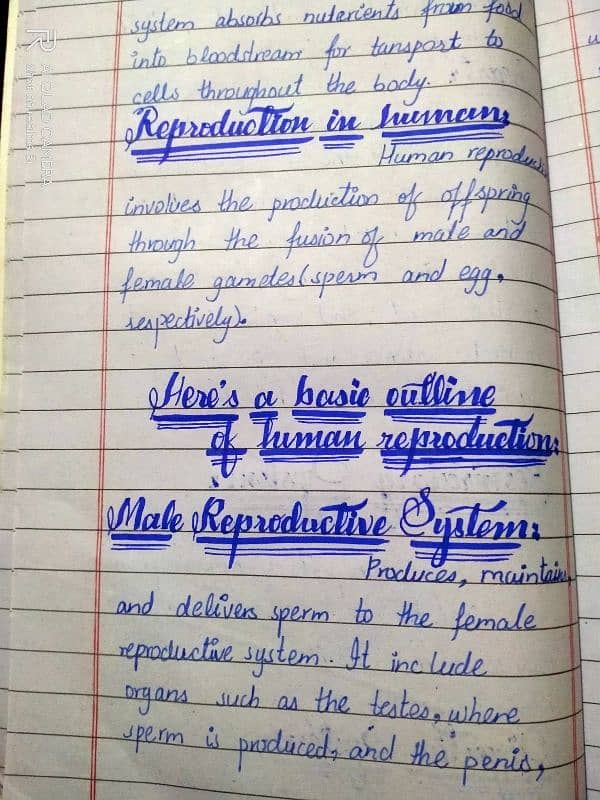 system absorbs nuterients from food
into bloodstream for tansport to
cells throughout the body.
Reproduction in human:
Human reproduc
involves the production of offspring
through the fusion of male and
female gametes (sperm and egg,
respectively).
Here's a basic outline
of human reproduction:
Male Reproductive System:
Produces, maintain
and delivers sperm to the female
reproductive system. It include
organs such as the testes, where
sperm is produced, and the penis,